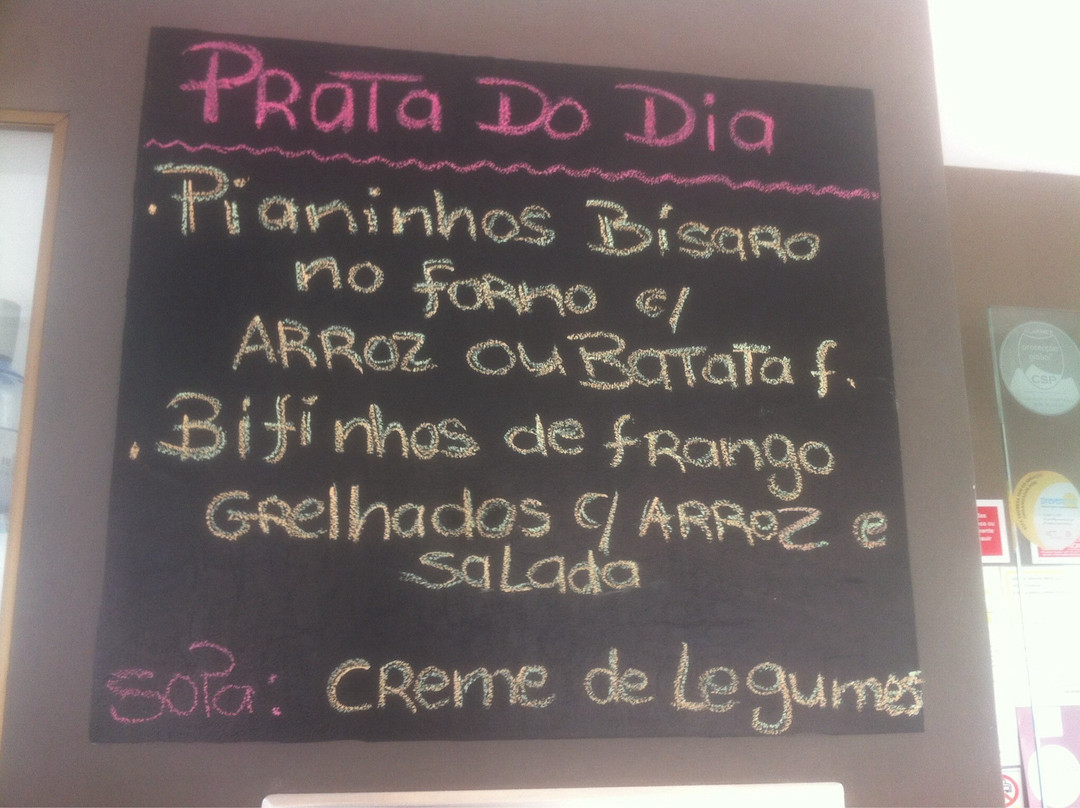 PRATA DO DIA
. Pianinhos Bísaro
no forno c/
ARROZ ou BATATA f.
. Bifinhos de frango
Grelhados c/ ARROZ e
Salada
Sopa: Creme de Legumes
CSP